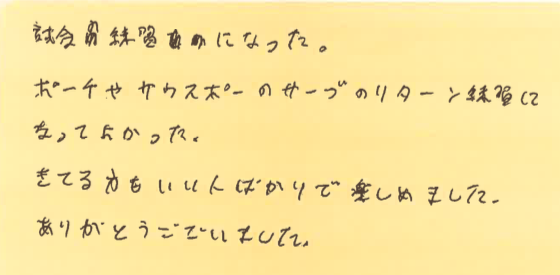 試合前練習になった。
ポーチやサウスポーのサーブのリターン練習に
なってよかった。
きてる方もいい人ばかりで楽しめました。
ありがとうございました。